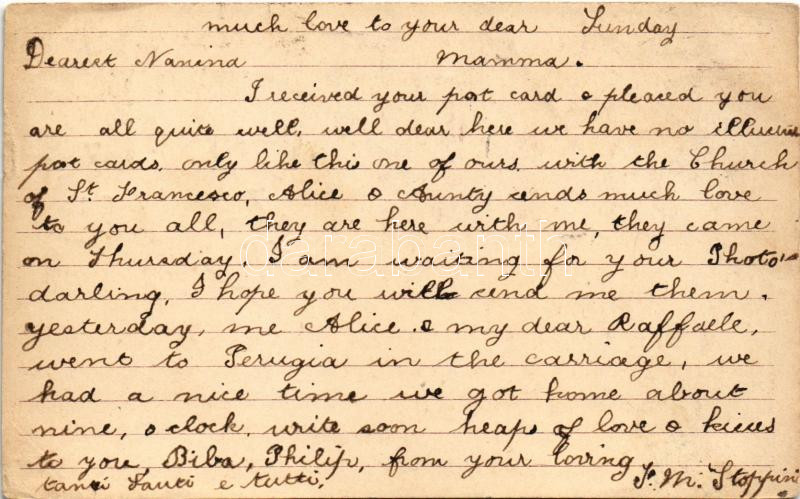 much love to your dear Sunday
Dearest Nanina Mamma.
I received your post card & pleased you
are all quite well, well dear here we have no
post cards. only like this one of ours. with the Church
of St. Francesco, Alice & Aunty sends much love
to you all, they are here with me, they came
on Thursday, I am waiting for your Photo's
darling, I hope you will send me them.
yesterday, me Alice & my dear Raffaele,
went to Perugia in the carriage, we
had a nice time we got home about
nine, o clock, write soon heaps of love & kisses
to you, Biba, Philip, from your loving
tanti e tutti. M. Stoppini
darabanth